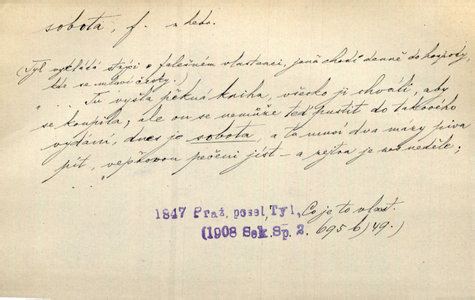 sobota, f.
(Tyl vykládá stájci o falešném vlastenci, jenž chodí denně do hospody,
kde se mluví česky.)
„ . . . Tu vyšla pěkná kniha, všecko ji chválí, aby
se koupila; ale on se nemůže teď pustit do takového
vydání, dnes je sobota, a tu musí dva máry piva
pít, vepřovou pečeni jíst – a zejtra je neděle;
1847 Praž. posel, Tyl, Co je to vlast.
(1908 Seb. Sp. 2. 695 b) 49.)